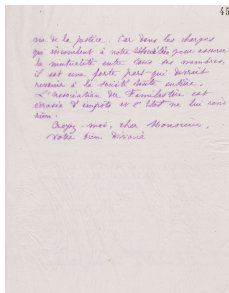 45
vue de la justice. Car dans les charges
qui incombent à notre association pour assurer
la mutualité entre tous ses membres,
il est une forte part qui devrait
revenir à la société toute entière.
L'association du Familistère est
écrasée d'impôts et l'Etat ne lui rend
rien.
Croyez-moi, cher Monsieur,
votre bien dévoué